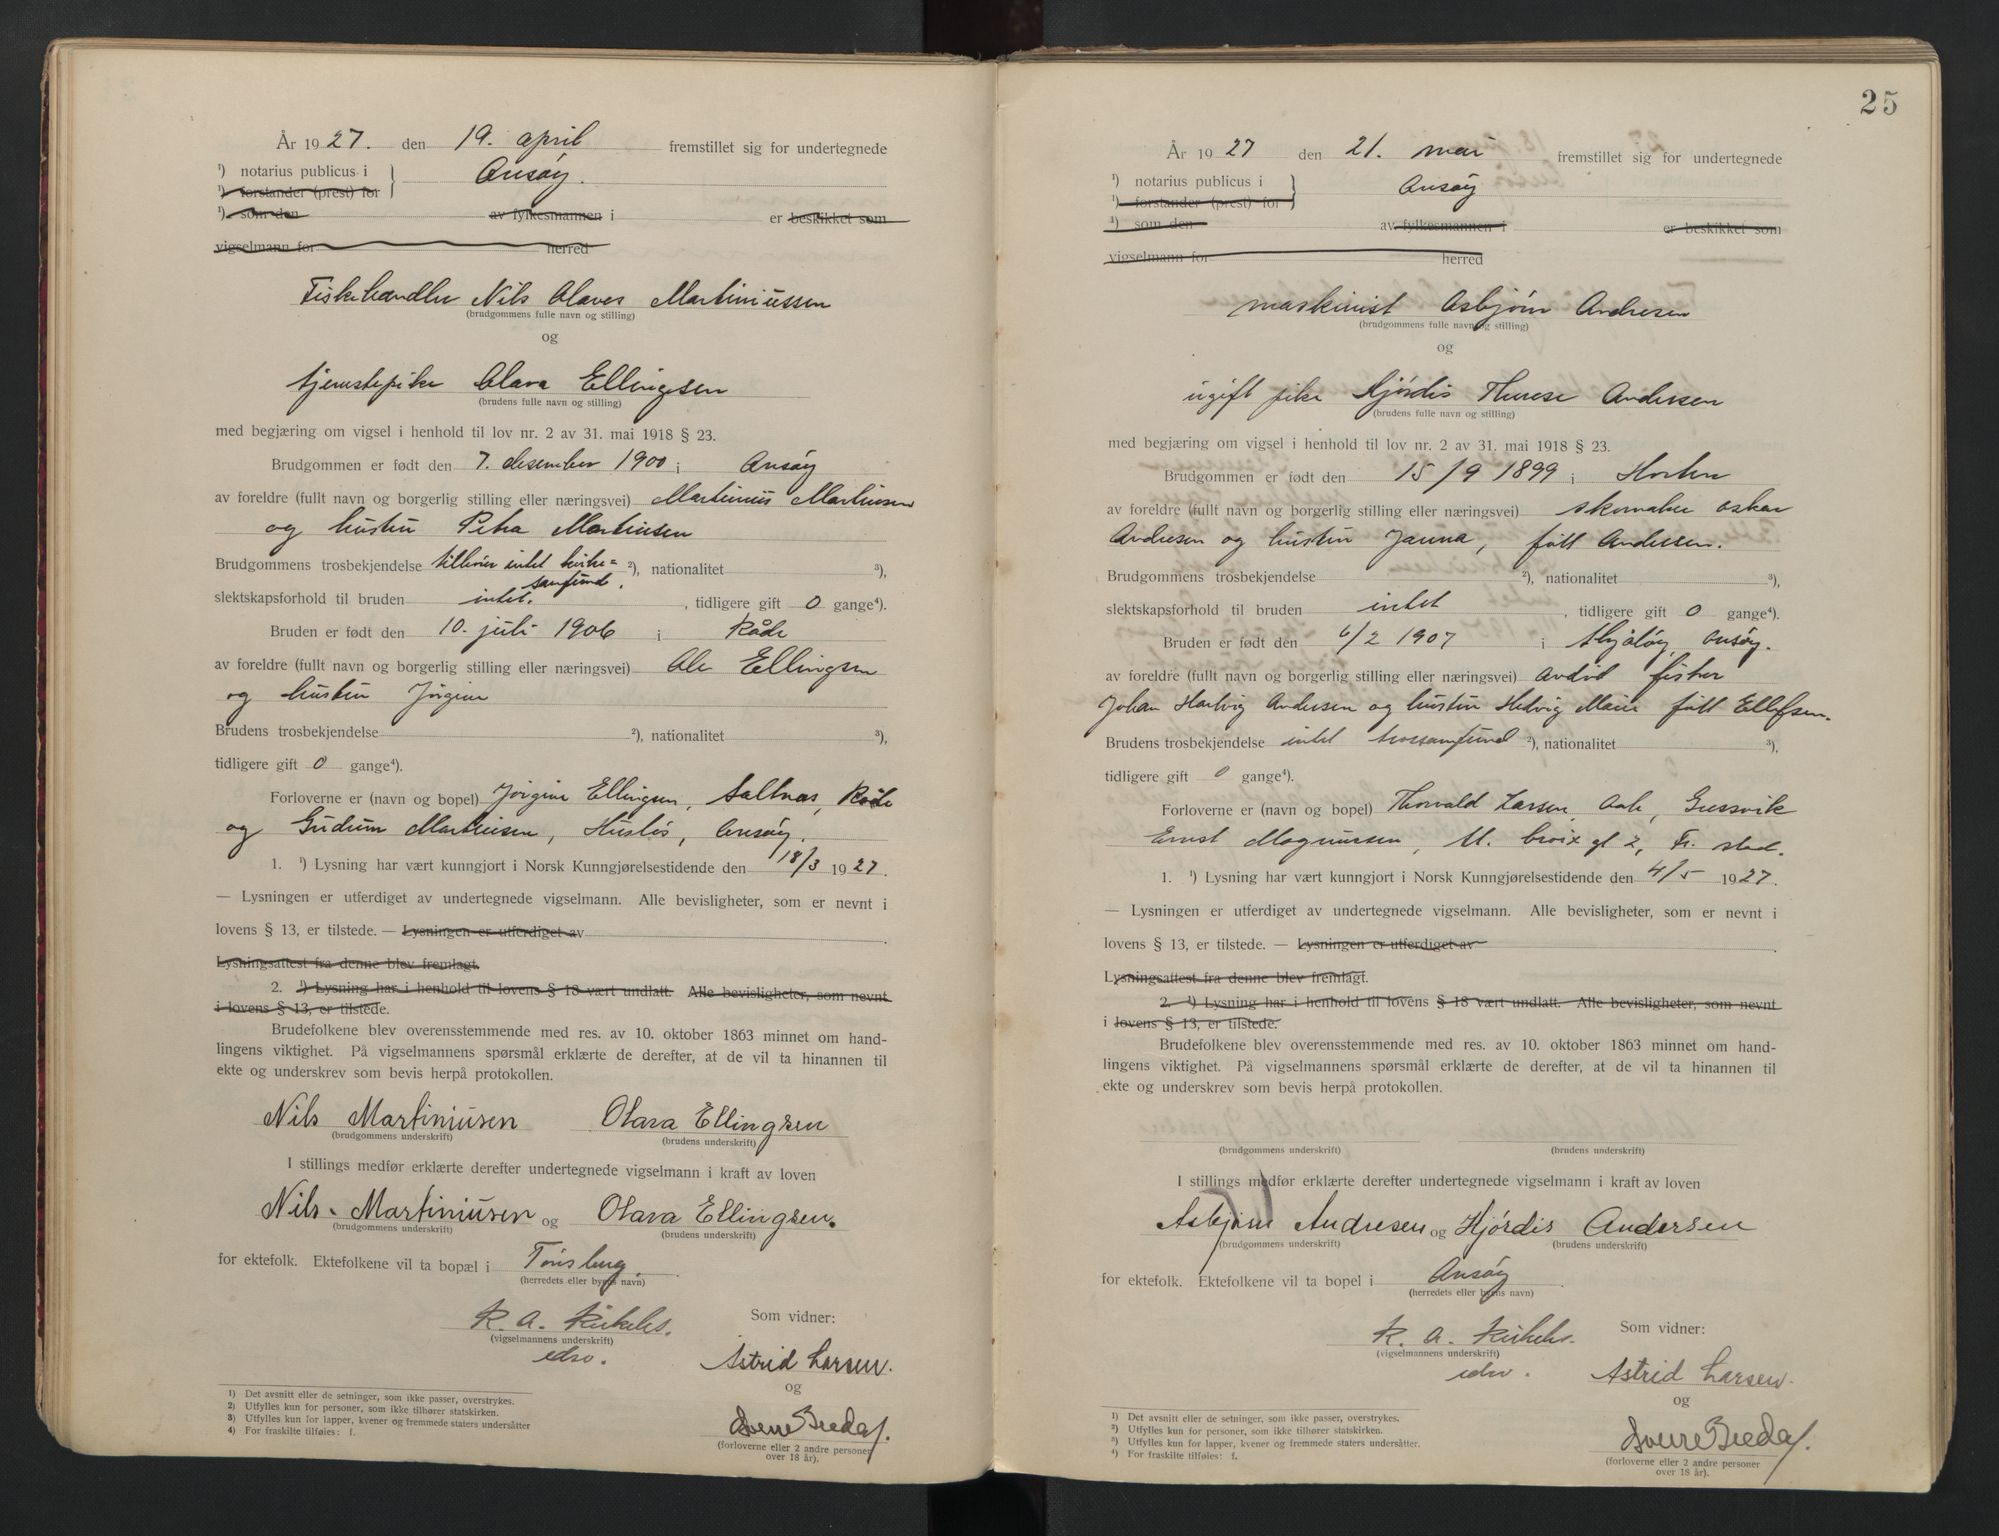 År 1927. den 19. april fremstillet sig for undertegnede
¹) notarius publicus i Onsøy.
¹) forstander (prest) for
¹) som den av fylkesmannen i er beskikket som
vigselmann for herred
Fiskehandler Nils Olaves Martiniussen
(brudgommens fulle navn og stilling)
og
tjenestepike Olava Ellingsen
(brudens fulle navn og stilling)
med begjæring om vigsel i henhold til lov nr. 2 av 31. mai 1918 § 23.
Brudgommen er født den 7. desember 1900 i Onsøy
av foreldre (fullt navn og borgerlig stilling eller næringsvei) Martinius Martinsen
og hustru Petra Martinsen
Brudgommens trosbekjendelse tilhører intet kirke= ²), nationalitet ³),
samfund.
slektskapsforhold til bruden intet. , tidligere gift 0 gange⁴).
Bruden er født den 10. juli 1906 i Råde
av foreldre (fullt navn og borgerlig stilling eller næringsvei) Ole Ellingsen
og hustru Jørgine
Brudens trosbekjendelse ²), nationalitet ³),
tidligere gift 0 gange⁴).
Forloverne er (navn og bopel) Jørgine Ellingsen, Saltnes, Råde
og Gudrun Martinsen, Onsøy.
1. ¹) Lysning har vært kunngjort i Norsk Kunngjørelsestidende den 18/3 1927.
— Lysningen er utferdiget av undertegnede vigselmann. Alle bevisligheter, som er nevnt i
lovens § 13, er tilstede. — Lysningen er utferdiget av
Lysningsattest fra denne blev fremlagt.
2. ¹) Lysning har i henhold til lovens § 18 vært undlatt. Alle bevisligheter, som nevnt
i lovens § 13, er tilstede.
Brudefolkene blev overensstemmende med res. av 10. oktober 1863 minnet om hand-
lingens viktighet. På vigselmannens spørsmål erklærte de derefter, at de vil ta hinannen til
ekte og underskrev som bevis herpå protokollen.
Nils Martiniusen Olava Ellingsen
(brudgommens underskrift) (brudens underskrift)
I stillings medfør erklærte derefter undertegnede vigselmann i kraft av loven
Nils Martiniusen og Olava Ellingsen.
(brudgommens underskrift) (brudens underskrift)
for ektefolk. Ektefolkene vil ta bopæl i Tønsberg.
(herredets eller byens navn)
Som vidner:
R. A.
(vigselmannens underskrift)
Astrid Larsen.
og
(forloverne eller 2 andre personer
over 18 år).
1) Det avsnitt eller de setninger, som ikke passer, overstrykes.
2) Utfylles kun for personer, som ikke tilhører statskirken.
3) Utfylles kun for lapper, kvener og fremmede staters undersåtter
4) For fraskilte tilføies: f.
25
År 1927 den 21. mai fremstillet sig for undertegnede
¹) notarius publicus i Onsøy
¹) forstander (prest) for
¹) som den av fylkesmannen i er beskikket som
vigselmann for herred
maskinist Asbjørn Andresen
(brudgommens fulle navn og stilling)
og
ugift pike Hjørdis Therese Andersen
(brudens fulle navn og stilling)
med begjæring om vigsel i henhold til lov nr. 2 av 31. mai 1918 § 23.
Brudgommen er født den 15/9 1899 i Horten
av foreldre (fullt navn og borgerlig stilling eller næringsvei) skomaker Oskar
Andresen og hustru Janna, født Andersen.
Brudgommens trosbekjendelse ²), nationalitet ³),
slektskapsforhold til bruden intet , tidligere gift 0 gange⁴).
Bruden er født den 6/2 1907 i Onsøy.
av foreldre (fullt navn og borgerlig stilling eller næringsvei) avdød fisker
Johan Hartvig Andersen og hustru Hedvig Marie født Ellefsen.
Brudens trosbekjendelse intet trossamfund ²), nationalitet ³),
tidligere gift 0 gange⁴).
Forloverne er (navn og bopel) Thorvald Larsen, Gressvik
Ernst Magnussen, gt 2, Fr. stad.
1. ¹) Lysning har vært kunngjort i Norsk Kunngjørelsestidende den 4/5 1927.
— Lysningen er utferdiget av undertegnede vigselmann. Alle bevisligheter, som er nevnt i
lovens § 13, er tilstede. — Lysningen er utferdiget av
Lysningsattest fra denne blev fremlagt.
2. ¹) Lysning har i henhold til lovens § 18 vært undlatt. Alle bevisligheter, som nevnt
i lovens § 13, er tilstede.
Brudefolkene blev overensstemmende med res. av 10. oktober 1863 minnet om hand-
lingens viktighet. På vigselmannens spørsmål erklærte de derefter, at de vil ta hinannen til
ekte og underskrev som bevis herpå protokollen.
(brudgommens underskrift) (brudens underskrift)
I stillings medfør erklærte derefter undertegnede vigselmann i kraft av loven
Asbjørn Andresen og Hjørdis Andersen
(brudgommens underskrift) (brudens underskrift)
for ektefolk. Ektefolkene vil ta bopel i Onsøy
(herredets eller byens navn)
Som vidner:
R. A.
(vigselmannens underskrift)
Astrid Larsen.
og
(forloverne eller 2 andre personer
over 18 år).
¹) Det avsnitt eller de setninger, som ikke passer, overstrykes.
²) Utfylles kun for personer, som ikke tilhører statskirken.
³) Utfylles kun for lapper, kvener og fremmede staters undersåtter.
⁴) For fraskilte tilføies: f.